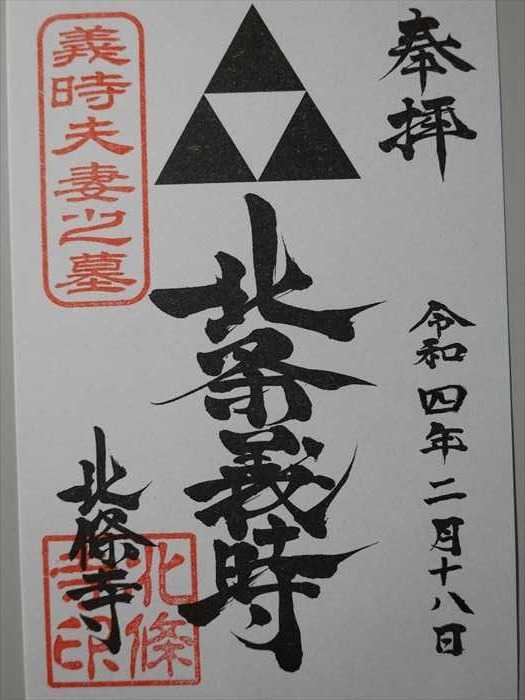 奉拝
令和四年二月十八日
北条義時
義時夫妻之墓
北條寺
北條寺印